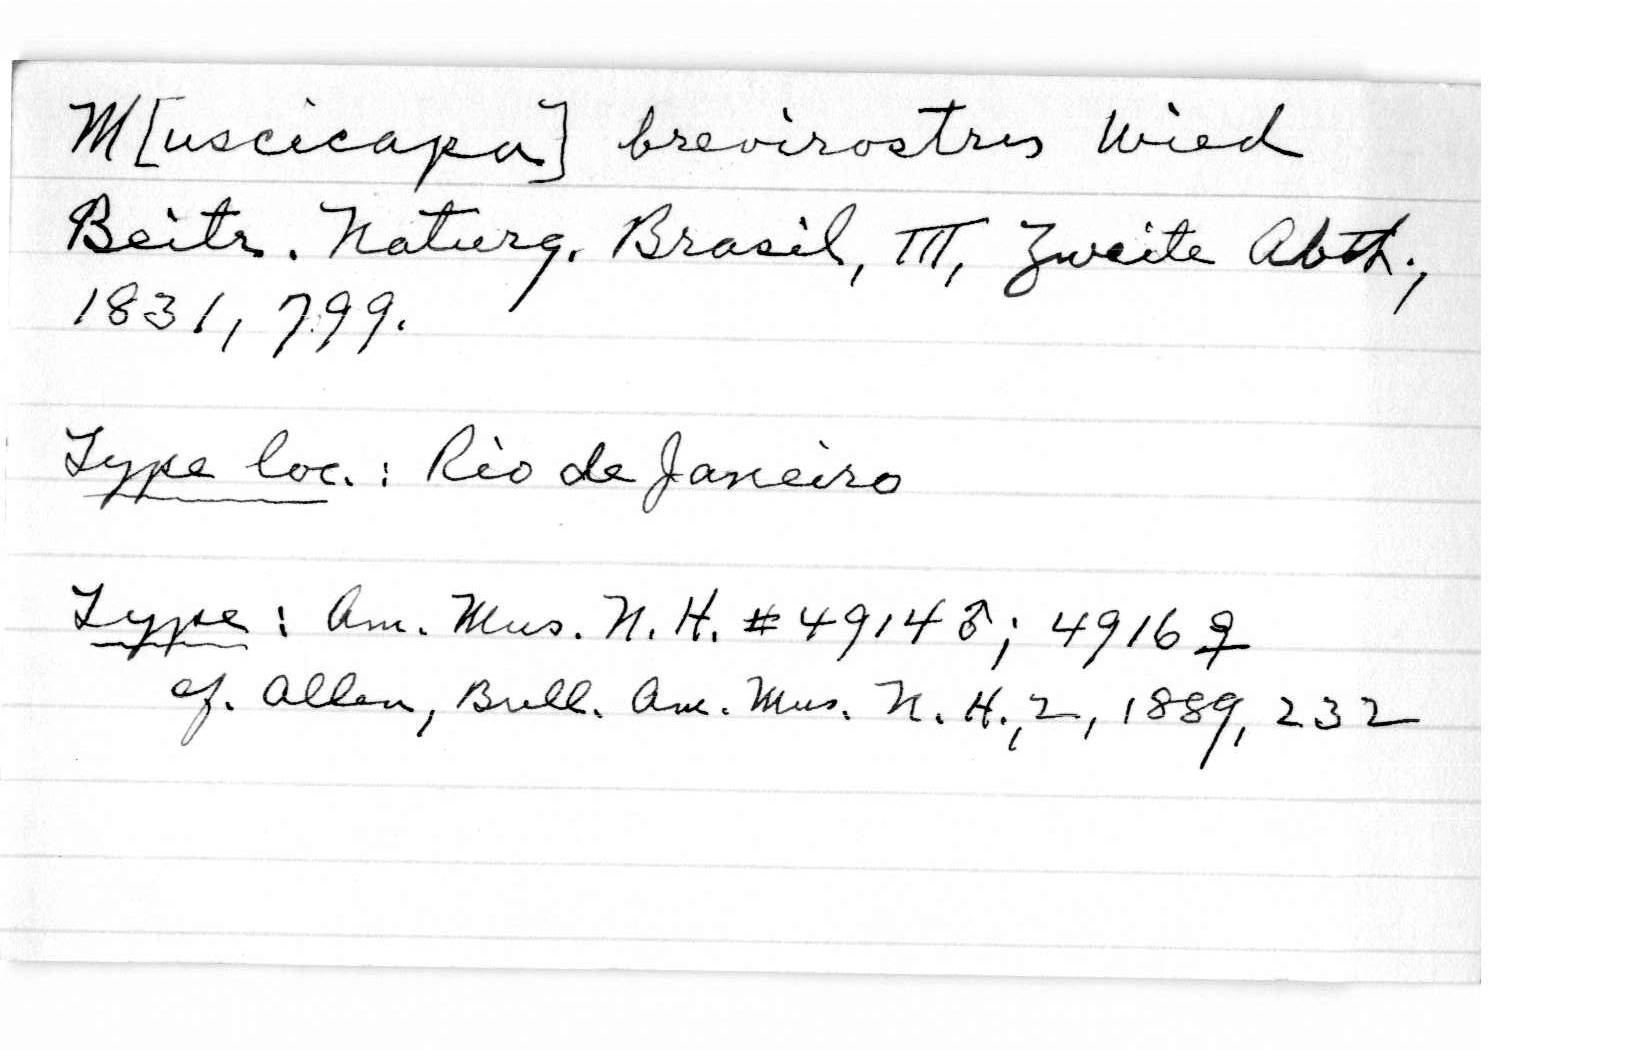 M[uscicapa] brevirostris Wied
Beitr. Naturg. Brasil, III, Zweite Abth.,
1831, 799.
Type loc.: Rio de Janeiro
Type: Am. Mus. N. H. #4914 ♂; 4916 ♀
cf. Allen, Bull. Am. Mus. N. H., 2, 1889, 232